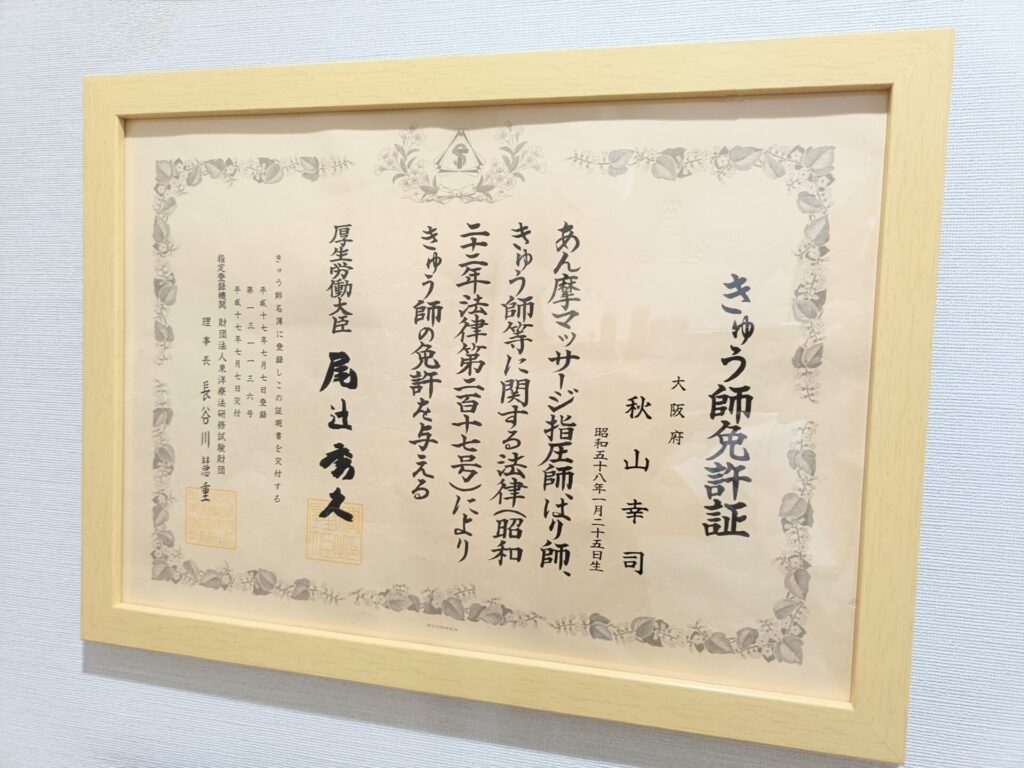 きゅう師免許証
大阪府
秋山幸司
昭和五十八年一月二十五日生
あん摩マッサージ指圧師、はり師、
きゅう師等に関する法律(昭和
二十二年法律第二百十七号)により
きゅう師の免許を与える
厚生労働大臣 尾辻秀久
きゅう師名簿に登録しこの証明書を交付する
平成十七年七月七日登録
第一三一一三六号
平成十七年七月七日交付
指定登録機関 財団法人東洋療法研修試験財団
理事長 長谷川慧重